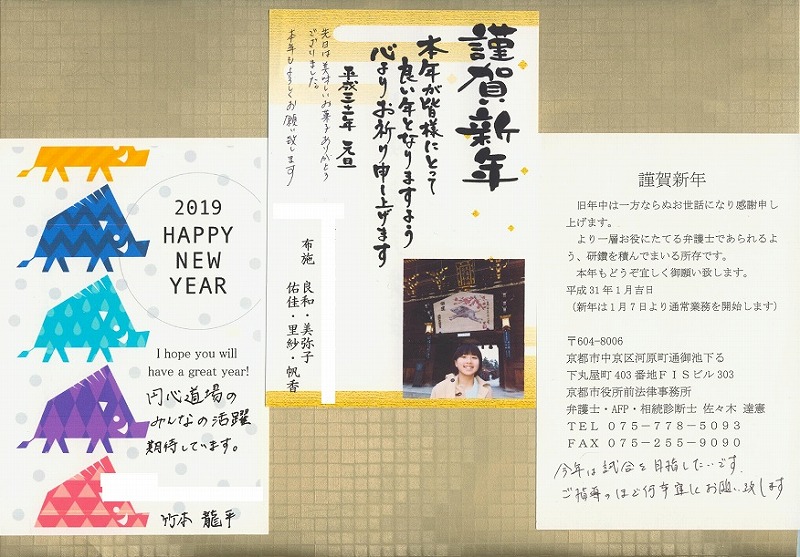 2019
HAPPY
NEW
YEAR
I hope you will
have a great year!
円心道場の
みんなの活躍
期待しています。
竹本 龍平
謹賀新年
本年が皆様にとって
良い年となりますよう
心よりお祈り申し上げます
平成三十一年 元旦
先日は美味しいお菓子ありがとう
ございました。
本年もよろしくお願い致します
布施 良和・美弥子
佑佳・里紗・帆香
謹賀新年
旧年中は一方ならぬお世話になり感謝申し
上げます。
より一層お役にたてる弁護士であられるよ
う、研鑽を積んでまいる所存です。
本年もどうぞ宜しく御願い致します。
平成 31 年 1 月吉日
（新年は 1 月 7 日より通常業務を開始します）
〒604-8006
京都市中京区河原町通御池下る
下丸屋町 403 番地ＦＩＳビル 303
京都市役所前法律事務所
弁護士・AFP・相続診断士 佐々木 達憲
ＴＥＬ ０７５－７７８－５０９３
ＦＡＸ ０７５－２５５－９０９０
今年は試合を目指したいです。
ご指導のほど何卒宜しくお願い致します